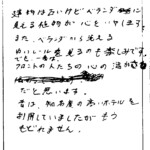 建物は古いけどベランダに
見える植物が心をいやします
また、ベランダから見える
ゆいレールを見るのも楽しみです。
でも一番は、
フロントの人たちの心の温かさ
だと思います。
昔は、知名度の高いホテルを
利用していましたがもう
もどれません。